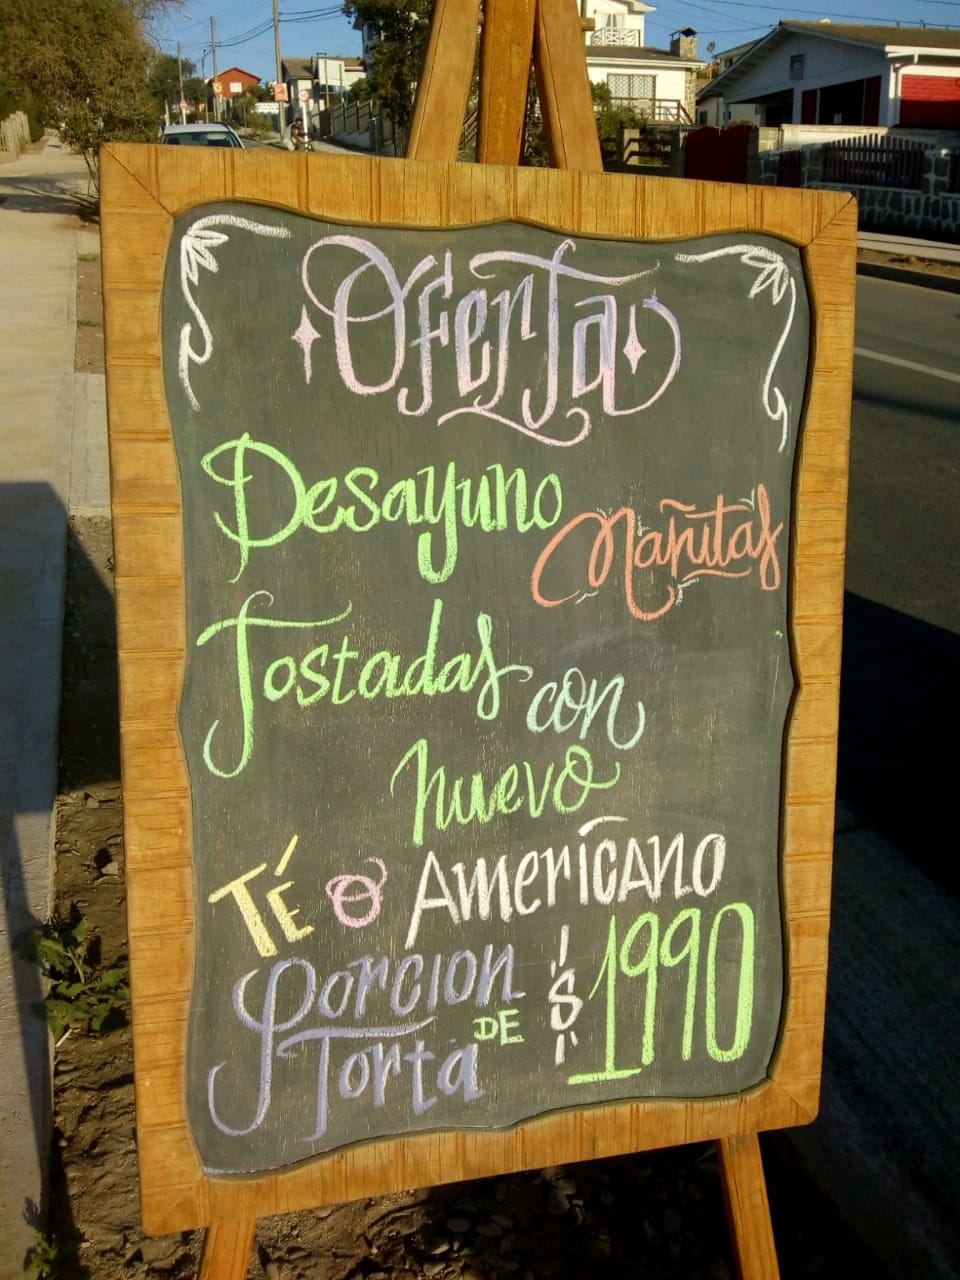 Oferta
Desayuno Mañitas
Tostadas con
huevo
TÉ o AmerícANo
Porcion DE
Torta
$1990